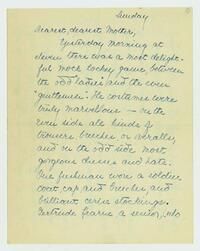 Sunday
Dearest, dearest Mother,
Yesterday morning at
eleven there was a most delight-
ful mock hockey game, between
the "odd ladies" and the even
"gentlemen". The costumes were
truly marvelous — on the
even side all kinds of
trousers, breeches, or overalls,
and on the odd side most
gorgeous dresses and hats.
One freshman wore a soldier
coat, cap, and breeches and
brilliant cerise stockings.
Gertrude Hearne, a senior, who